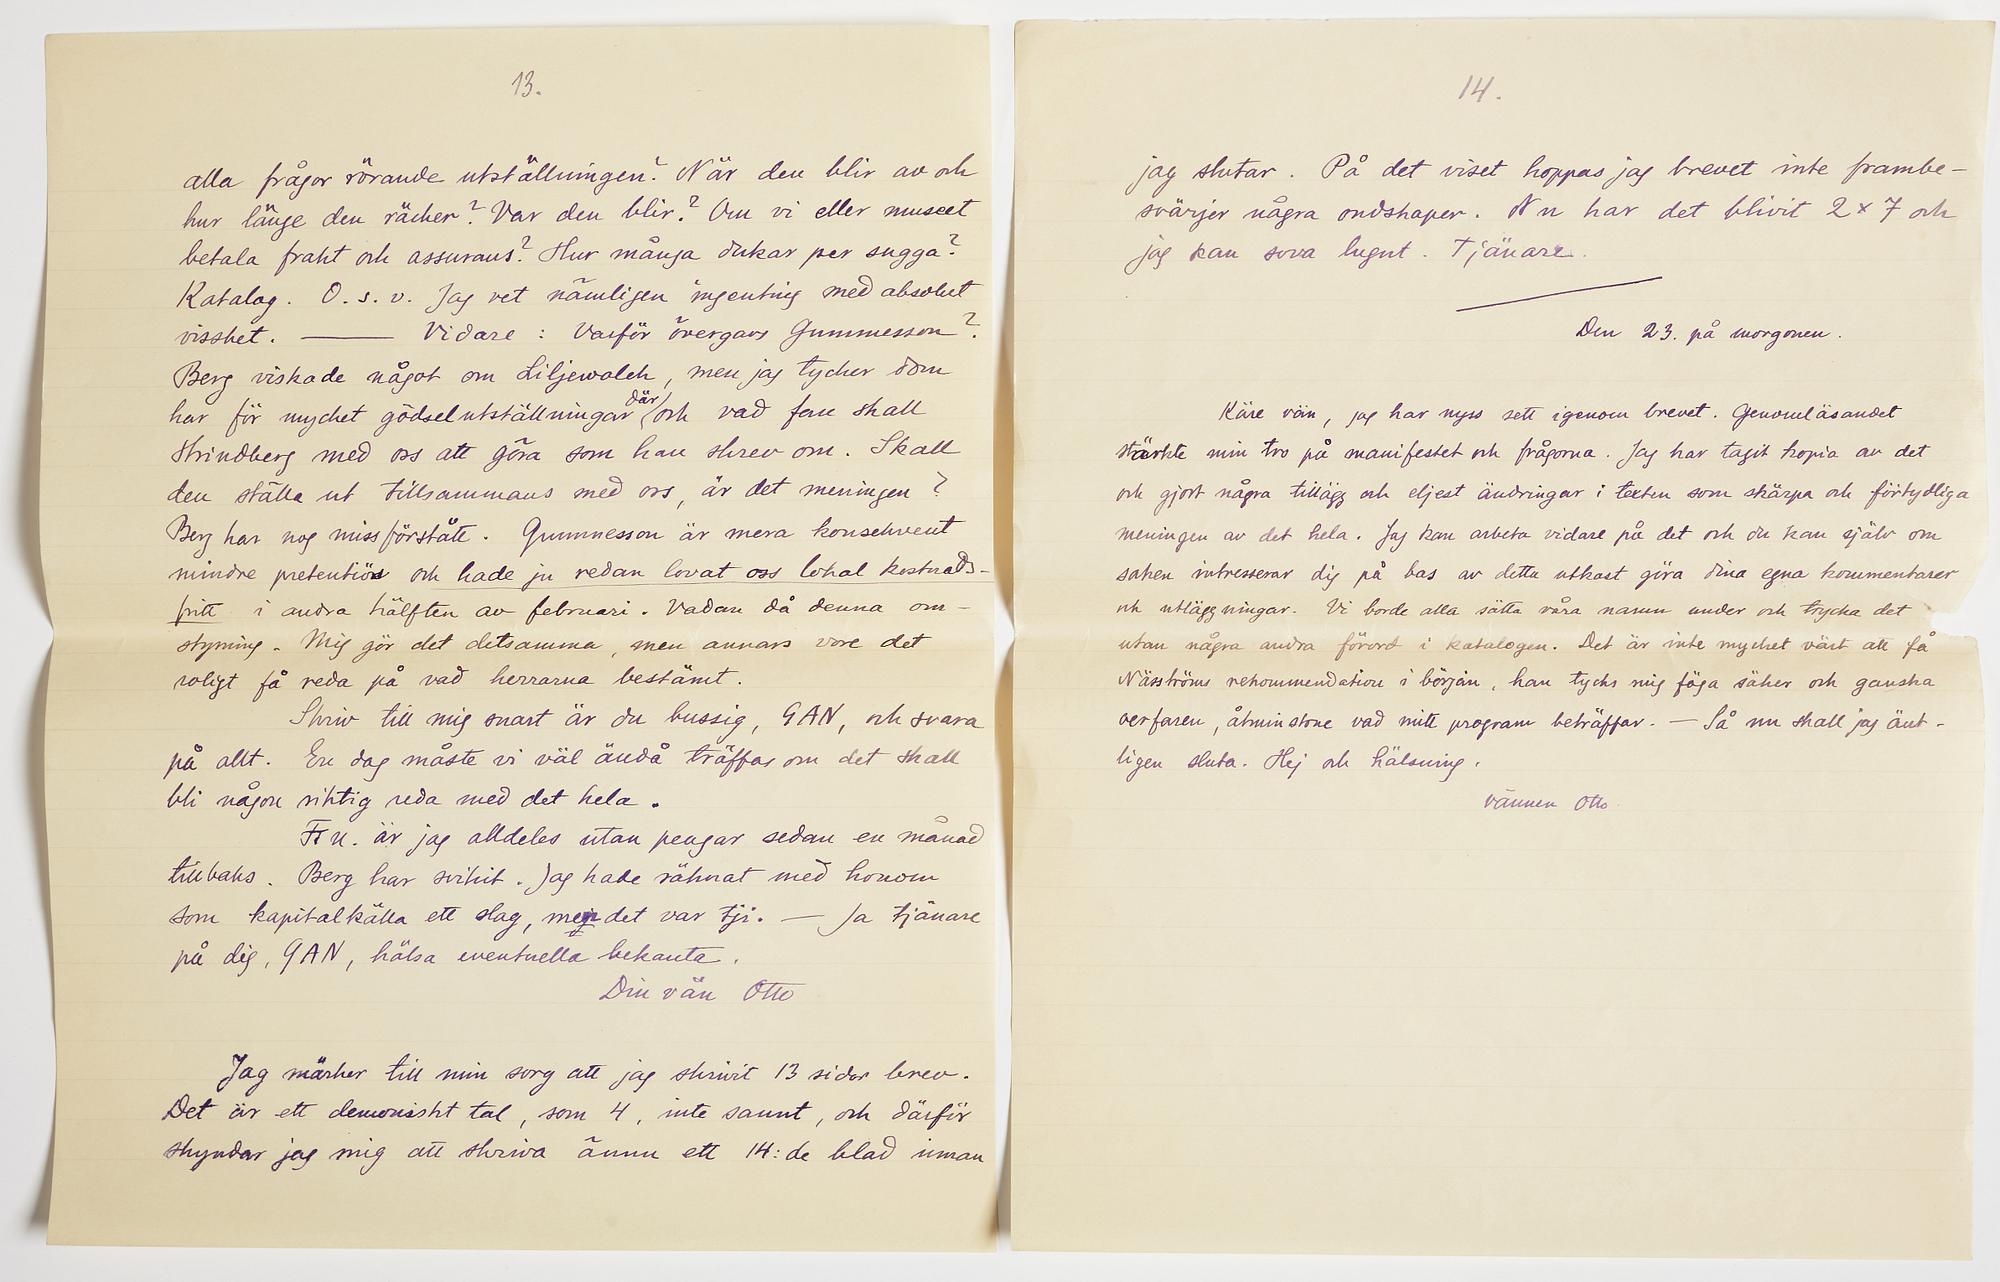 13.
alla frågor rörande utställningen? När den blir av och
hur länge den räcker? Var den blir? Om vi eller museet
betala frakt och assurans? Hur många dukar per sugga?
Katalog. O.s.v. Jag vet nämligen ingenting med absolut
visshet. ——— Vidare: Varför övergavs Gummesson?
Berg viskade något om Liljewalch, men jag tycker dom
har för mycket gödselutställningar där och vad fan skall
Strindberg med oss att göra som han skrev om. Skall
den ställa ut tillsammans med oss, är det meningen?
Berg har nog missförstått. Gummesson är mera konsekvent
mindre pretentiös och hade ju redan lovat oss lokal kostnads-
fritt i andra hälften av februari. Vadan då denna om-
styrning. Mig gör det detsamma, men annars vore det
roligt få reda på vad herrarna bestämt.
Skriv till mig snart är du bussig, GAN, och svara
på allt. En dag måste vi väl ändå träffas om det skall
bli någon riktig reda med det hela.
F.n. är jag alldeles utan pengar sedan en månad
tillbaks. Berg har svikit. Jag hade räknat med honom
som kapitalkälla ett slag, men det var tji. — Ja tjänare
på dig, GAN, hälsa eventuella bekanta.
Din vän Otto
Jag märker till min sorg att jag skrivit 13 sidor brev.
Det är ett demoniskt tal, som 4, inte sannt, och därför
skyndar jag mig att skriva ännu ett 14:de blad innan
14.
jag slutar. På det viset hoppas jag brevet inte frambe-
svärjer några ondskaper. Nu har det blivit 2 x 7 och
jag kan sova lugnt. Tjänare.
Den 23. på morgonen.
Käre vän, jag har nyss sett igenom brevet. Genomläsandet
stärkte min tro på manifestet och frågorna. Jag har tagit kopia av det
och gjort några tillägg och eljest ändringar i texten som skärpa och förtydliga
meningen av det hela. Jag kan arbeta vidare på det och du kan själv om
saken intresserar dig på bas av detta utkast göra dina egna kommentarer
och utläggningar. Vi borde alla sätta våra namn under och trycka det
utan några andra förord i katalogen. Det är inte mycket värt att få
Näsströms rekommendation i början, han tycks mig föga säker och ganska
oerfaren, åtminstone vad mitt program beträffar. — Så nu skall jag änt-
ligen sluta. Hej och hälsning.
vännen Otto